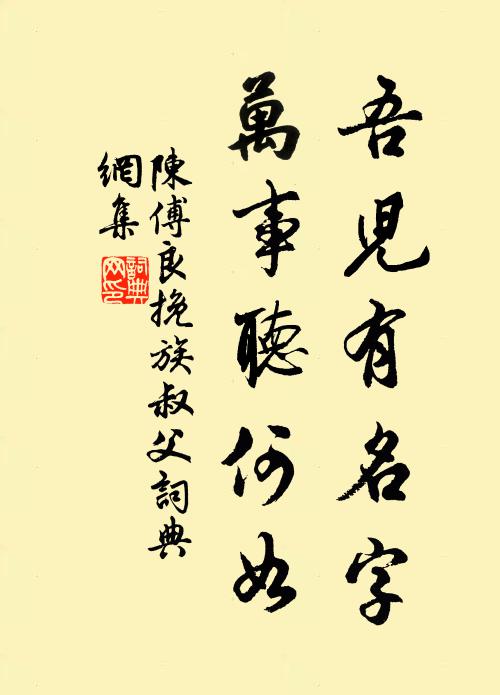 吾兒有名字
萬事聽何如
陳傅良挽族叔父詞典
網集
詞典網印